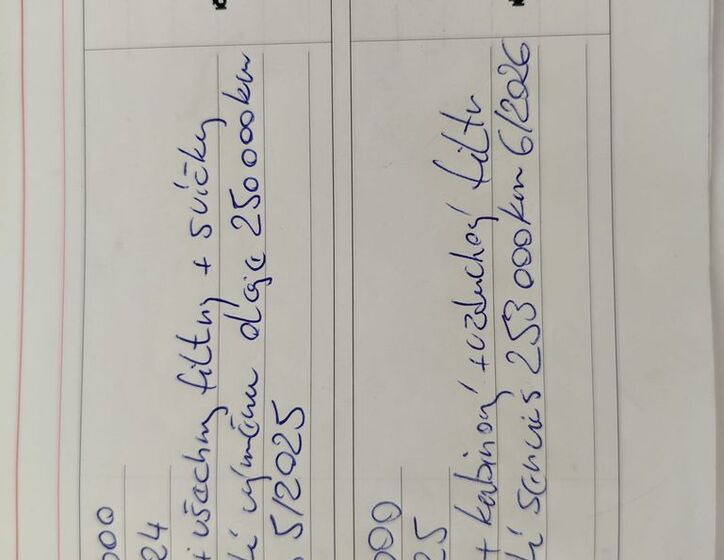 000
24
i všechny filtry + svíčky
í výměna oleje 250 000km
5/2025
000
25
+ kabinový + vzduchový filtr
í servis 253 000km 6/2026